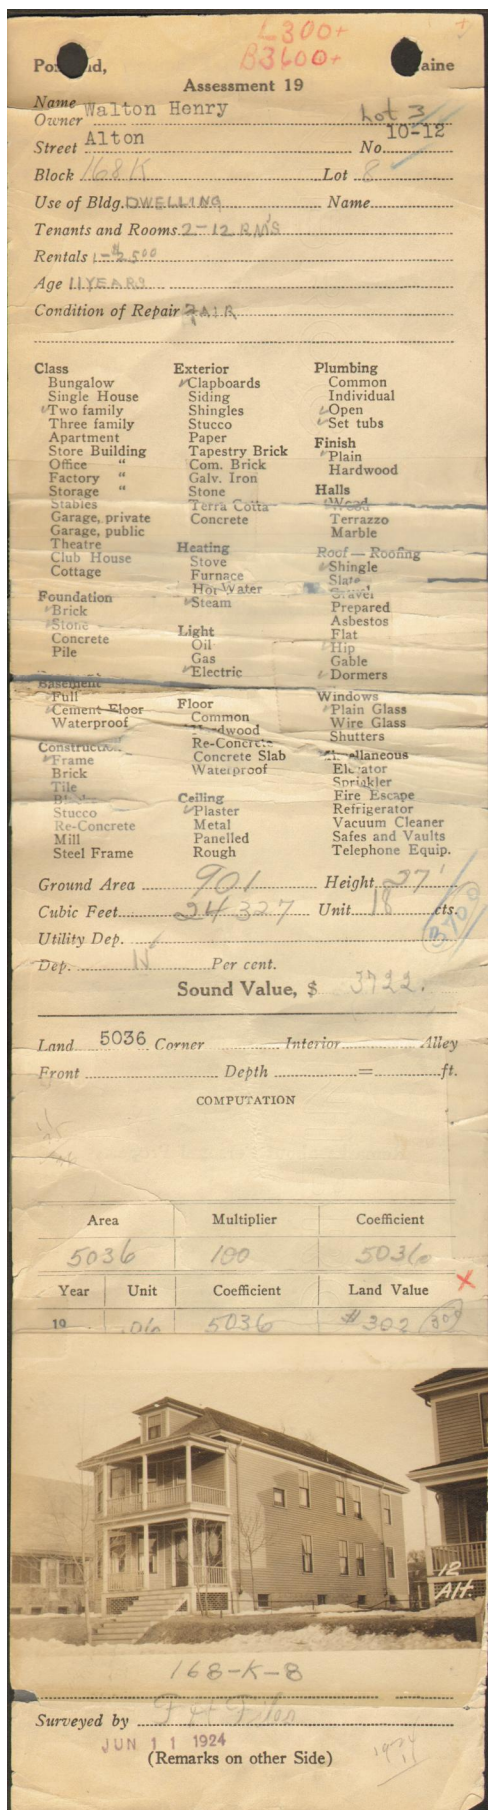 L300+
B3600+
Portland, Maine
Assessment 19
Name
Owner Walton Henry Lot 3
Street Alton No. 10-12
Block 168K Lot 8
Use of Bldg. DWELLING Name
Tenants and Rooms. 2-12 RM'S
Rentals 1-$2500
Age 11 YEARS
Condition of Repair FAIR
Class
Bungalow
Single House
✓Two family
Three family
Apartment
Store Building
Office "
Factory "
Storage "
Stables
Garage, private
Garage, public
Theatre
Club House
Cottage
Foundation
✓Brick
✓Stone
Concrete
Pile
Basement
✓Full
✓Cement Floor
Waterproof
Construction
✓Frame
Brick
Tile
Stucco
Re-Concrete
Mill
Steel Frame
Exterior
✓Clapboards
Siding
Shingles
Stucco
Paper
Tapestry Brick
Com. Brick
Galv. Iron
Stone
Terra Cotta
Concrete
Heating
Stove
Furnace
Hot Water
✓Steam
Light
Oil
Gas
✓Electric
Floor
Common
Hardwood
Re-Concrete
Concrete Slab
Waterproof
Ceiling
✓Plaster
Metal
Panelled
Rough
Plumbing
Common
Individual
✓Open
✓Set tubs
Finish
✓Plain
Hardwood
Halls
✓Wood
Terrazzo
Marble
Roof — Roofing
✓Shingle
Slate
Gravel
Prepared
Asbestos
Flat
✓Hip
Gable
✓Dormers
Windows
✓Plain Glass
Wire Glass
Shutters
Miscellaneous
Elevator
Sprinkler
Fire Escape
Refrigerator
Vacuum Cleaner
Safes and Vaults
Telephone Equip.
Ground Area 901 Height 27'
Cubic Feet 24327 Unit 18 cts.
Utility Dep. 3700
Dep. Per cent.
Sound Value, $ 3722.
Land 5036 Corner Interior Alley
Front Depth = ft.
COMPUTATION
Area Multiplier Coefficient
5036 100 5036
Year Unit Coefficient Land Value
19 .06 5036 $302 300
12
Alt.
168-K-8
Surveyed by
JUN 11 1924
(Remarks on other Side)